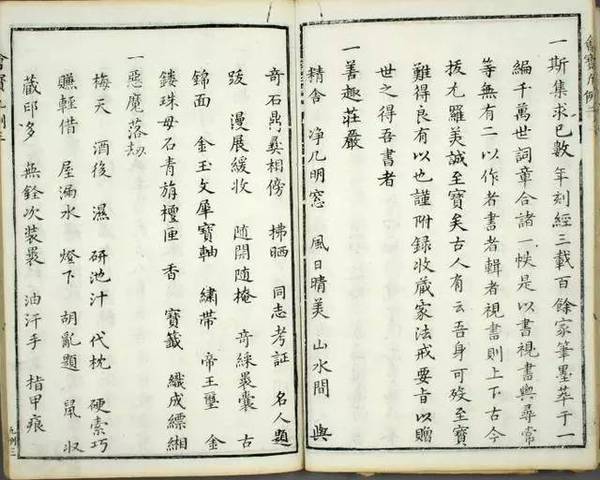 一斯集求已數年刻經三載百餘家筆墨萃于一
編千萬世詞章合諸一帙是以書視書與尋常
等無有二以作者書者輯者視書則上下古今
拔尤羅美誠至寶矣古人有云吾身可歿至寶
難得良有以也謹附錄收藏家法戒要旨以贈
世之得吾書者
一善趣莊嚴
精舍 净几明窓 風日晴美 山水間 與
奇石鼎彝相傍 拂晒 同志考証 名人題
跋 漫展緩收 随開随掩 奇綵裝囊 古
錦面 金玉文犀寶軸 繡帶 帝王璽 金
鏤珠母石青旃檀匣 香 寶籤 織成縹緗
一惡魔落劫
梅天 酒後 濕 研池汁 代枕 硬索巧
賺輕借 屋漏水 燈下 胡亂題 鼠 收
藏印多 無銓次裝裹 油汗手 指甲痕